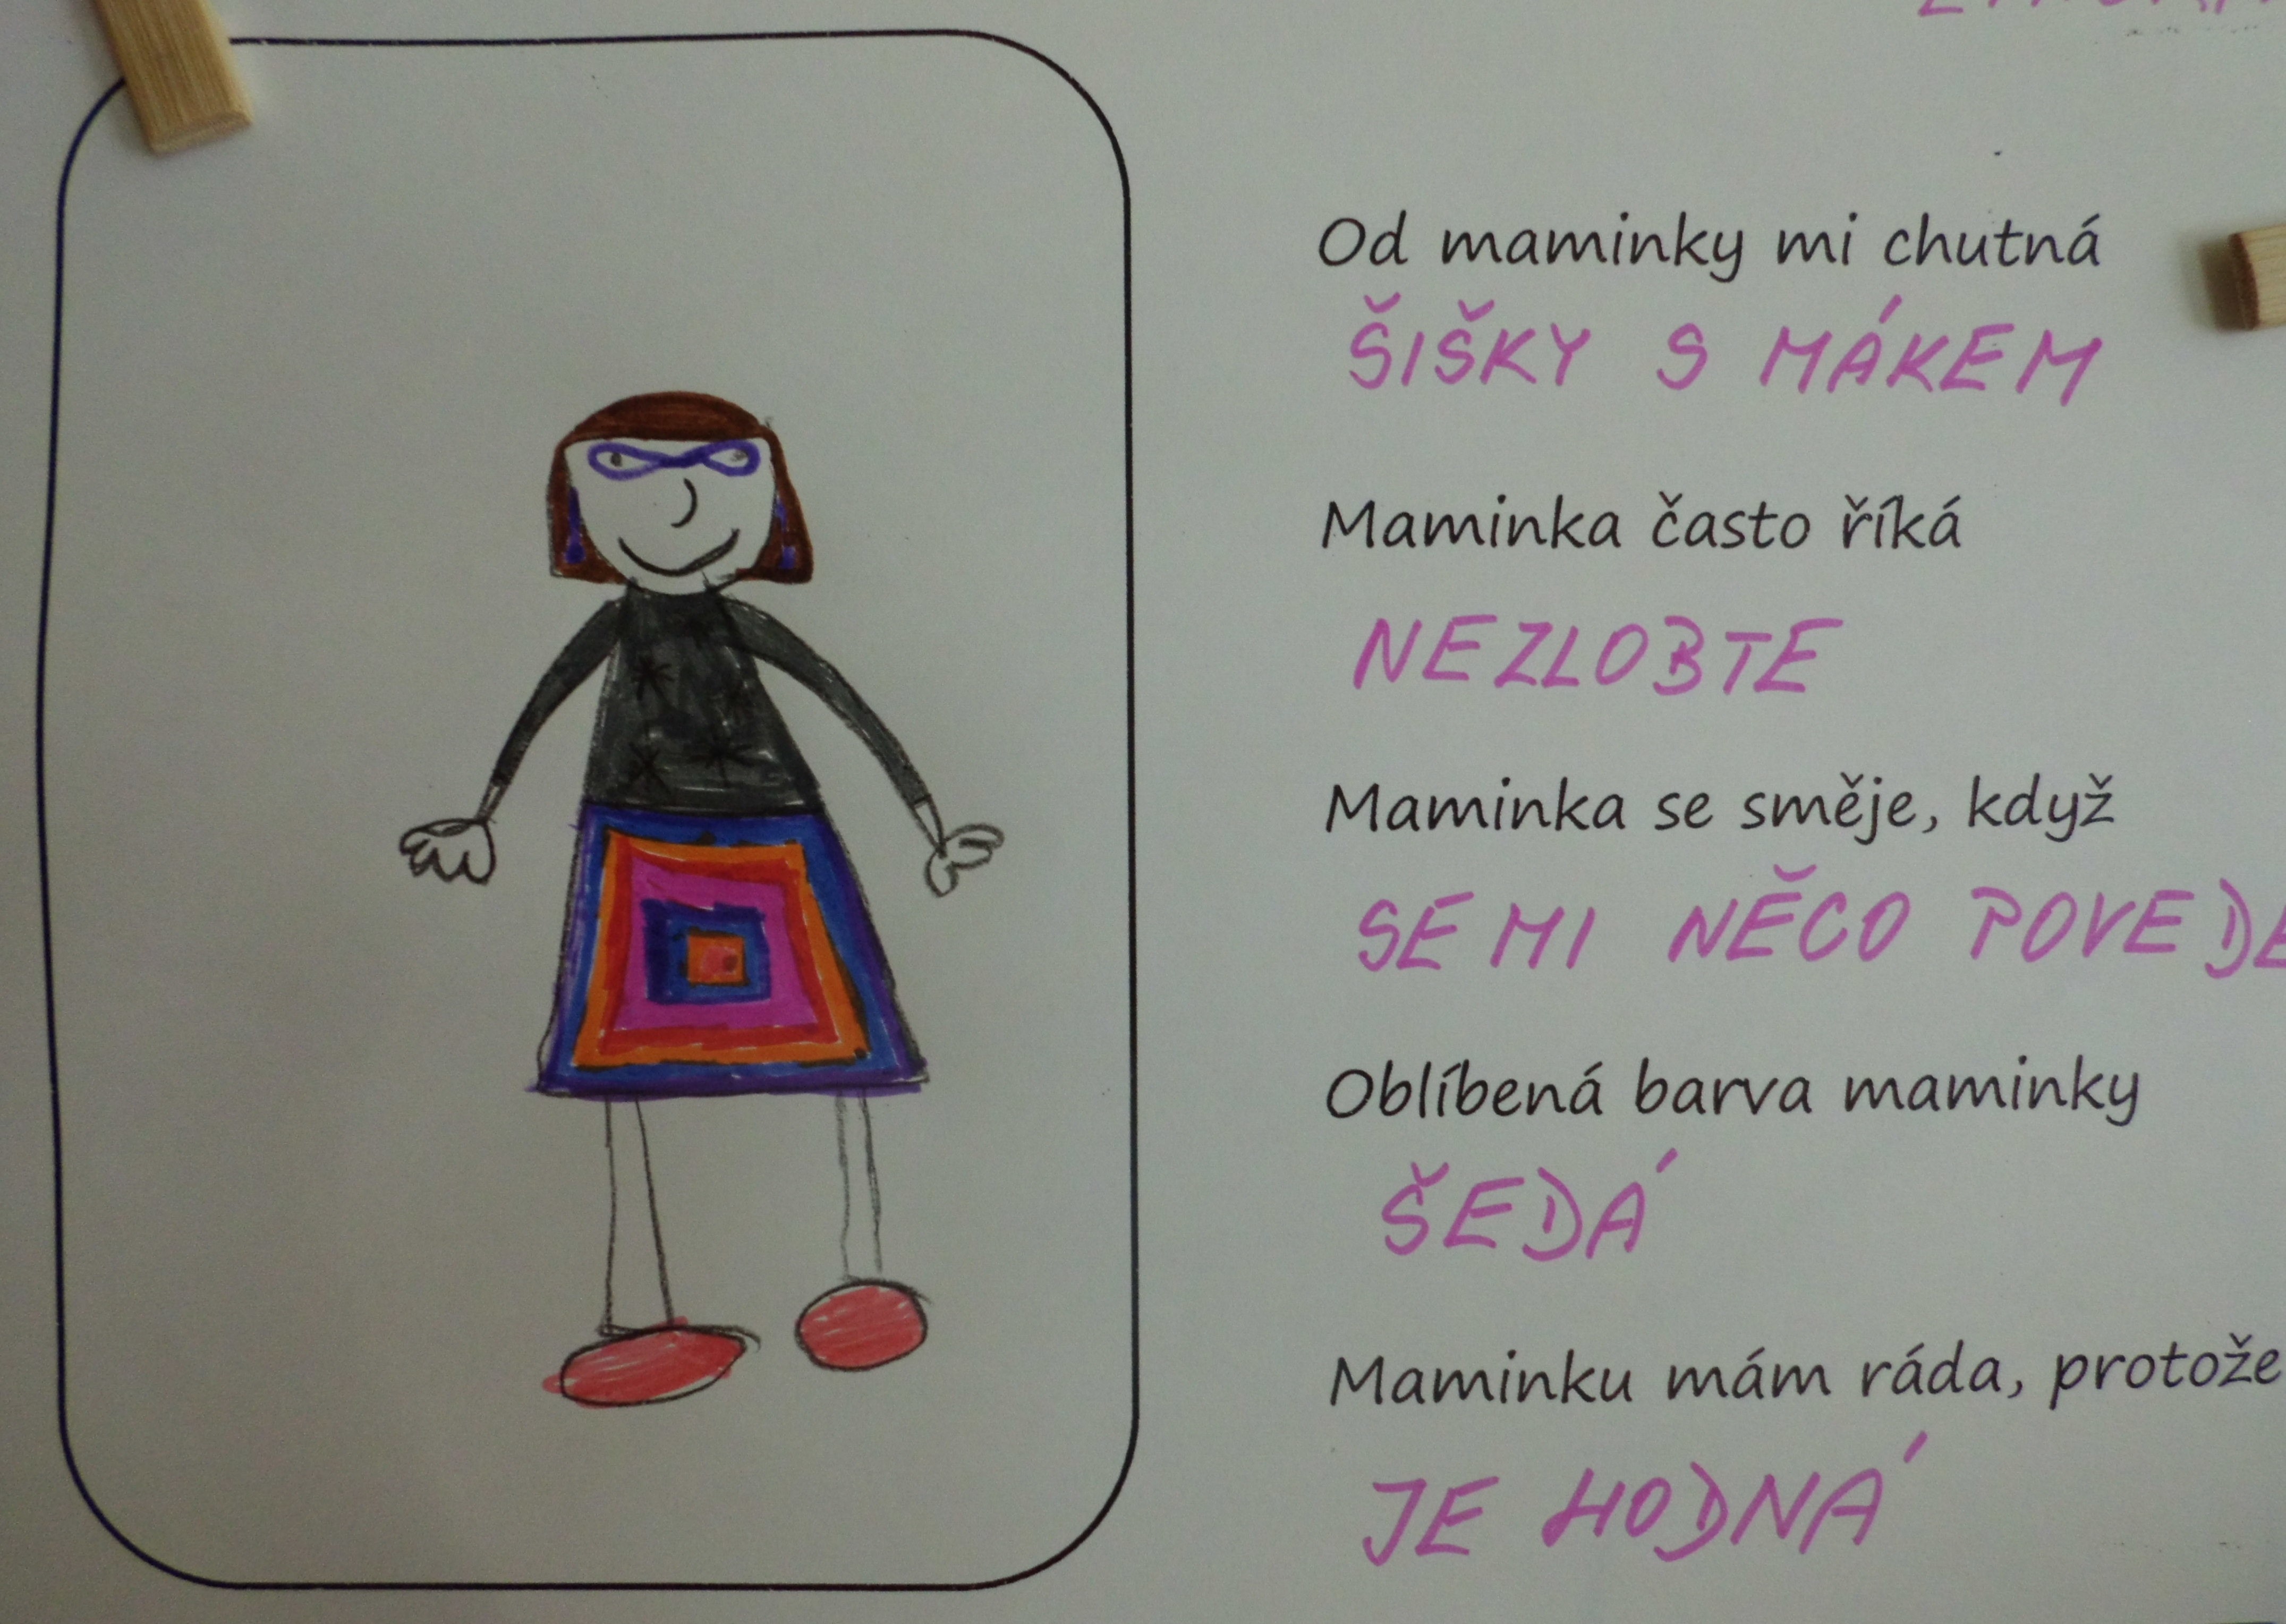 Od maminky mi chutná
ŠIŠKY S MÁKEM
Maminka často říká
NEZLOBTE
Maminka se směje, když
SE MI NĚCO POVEDE
Oblíbená barva maminky
ŠEDÁ
Maminku mám ráda, protože
JE HODNÁ